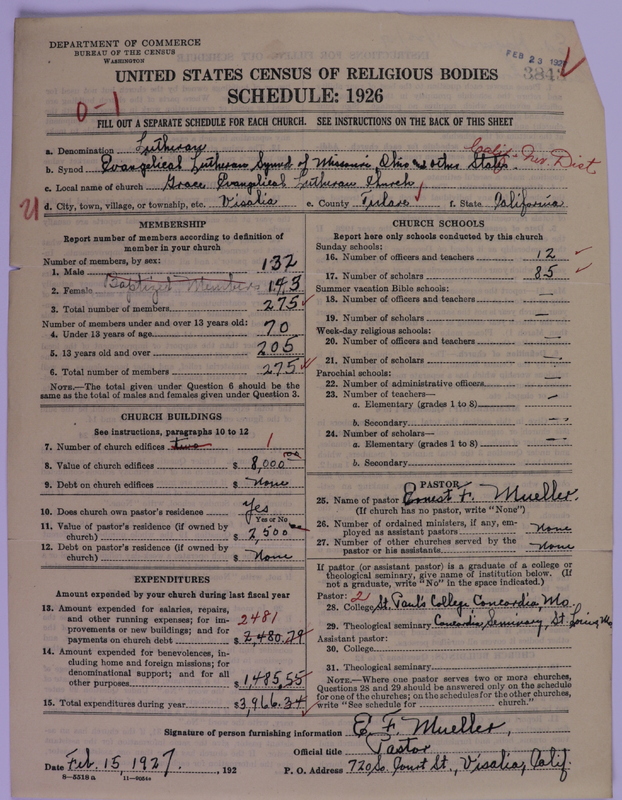 DEPARTMENT OF COMMERCE
BUREAU OF THE CENSUS
WASHINGTON
FEB 23 192
3843
UNITED STATES CENSUS OF RELIGIOUS BODIES
SCHEDULE: 1926
0-1
FILL OUT A SEPARATE SCHEDULE FOR EACH CHURCH. SEE INSTRUCTIONS ON THE BACK OF THIS SHEET
a. Denomination Lutheran
Calif. Nev. Dist
b. Synod Evangelical Lutheran Synod of Missouri, Ohio and other States
c. Local name of church Grace Evangelical Lutheran Church
d. City, town, village, or township, etc. Visalia e. County Tulare f. State California
MEMBERSHIP
Report number of members according to definition of
member in your church
Number of members, by sex:
1. Male 132
2. Female Baptized Members 143
3. Total number of members 275
Number of members under and over 13 years old:
4. Under 13 years of age 70
5. 13 years old and over 205
6. Total number of members 275
NOTE.—The total given under Question 6 should be
same as the total of males and females given under Question 3.
CHURCH BUILDINGS
See instructions, paragraphs 10 to 12
7. Number of church edifices two 1
8. Value of church edifices $ 8,000
9. Debt on church edifices $ None
10. Does church own pastor's residence Yes
Yes or No
11. Value of pastor's residence (if owned by
church) $ 2,500
12. Debt on pastor's residence (if owned by
church) $ None
EXPENDITURES
Amount expended by your church during last fiscal year
13. Amount expended for salaries, repairs,
and other running expenses; for im-
provements or new buildings; and for
payments on church debt $ 2,480.79
2481
14. Amount expended for benevolences, in-
cluding home and foreign missions; for
denominational support; and for all
other purposes $ 1,485.55
15. Total expenditures during year $3,966.34
CHURCH SCHOOLS
Report here only schools conducted by this church
Sunday schools:
16. Number of officers and teachers 12
17. Number of scholars 85
Summer vacation Bible schools:
18. Number of officers and teachers —
19. Number of scholars —
Week-day religious schools:
20. Number of officers and teachers —
21. Number of scholars —
Parochial schools:
22. Number of administrative officers —
23. Number of teachers—
a. Elementary (grades 1 to 8) —
b. Secondary —
24. Number of scholars—
a. Elementary (grades 1 to 8) —
b. Secondary —
PASTOR
25. Name of pastor Ernest F. Mueller.
(If church has no pastor, write "None")
26. Number of ordained ministers, if any, em-
ployed as assistant pastors None
27. Number of other churches served by the
pastor or his assistants None
If pastor (or assistant pastor) is a graduate of a college or
theological seminary, give name of institution below. (If
not a graduate, write "No" in the space indicated.)
Pastor: 2
28. College St. Paul's College, Concordia, Mo.
29. Theological seminary Concordia Seminary, St. Louis, Mo
Assistant pastor:
30. College
31. Theological seminary
NOTE.—Where one pastor serves two or more churches,
Questions 28 and 29 should be answered only on the schedule
for one of the churches; on the schedules for the other churches,
write "See schedule for church."
Signature of person furnishing information E. F. Mueller,
Official title Pastor
Date Feb. 15, 1927, 192 P. O. Address 720 So. Court St., Visalia, Calif.
8-5518 a